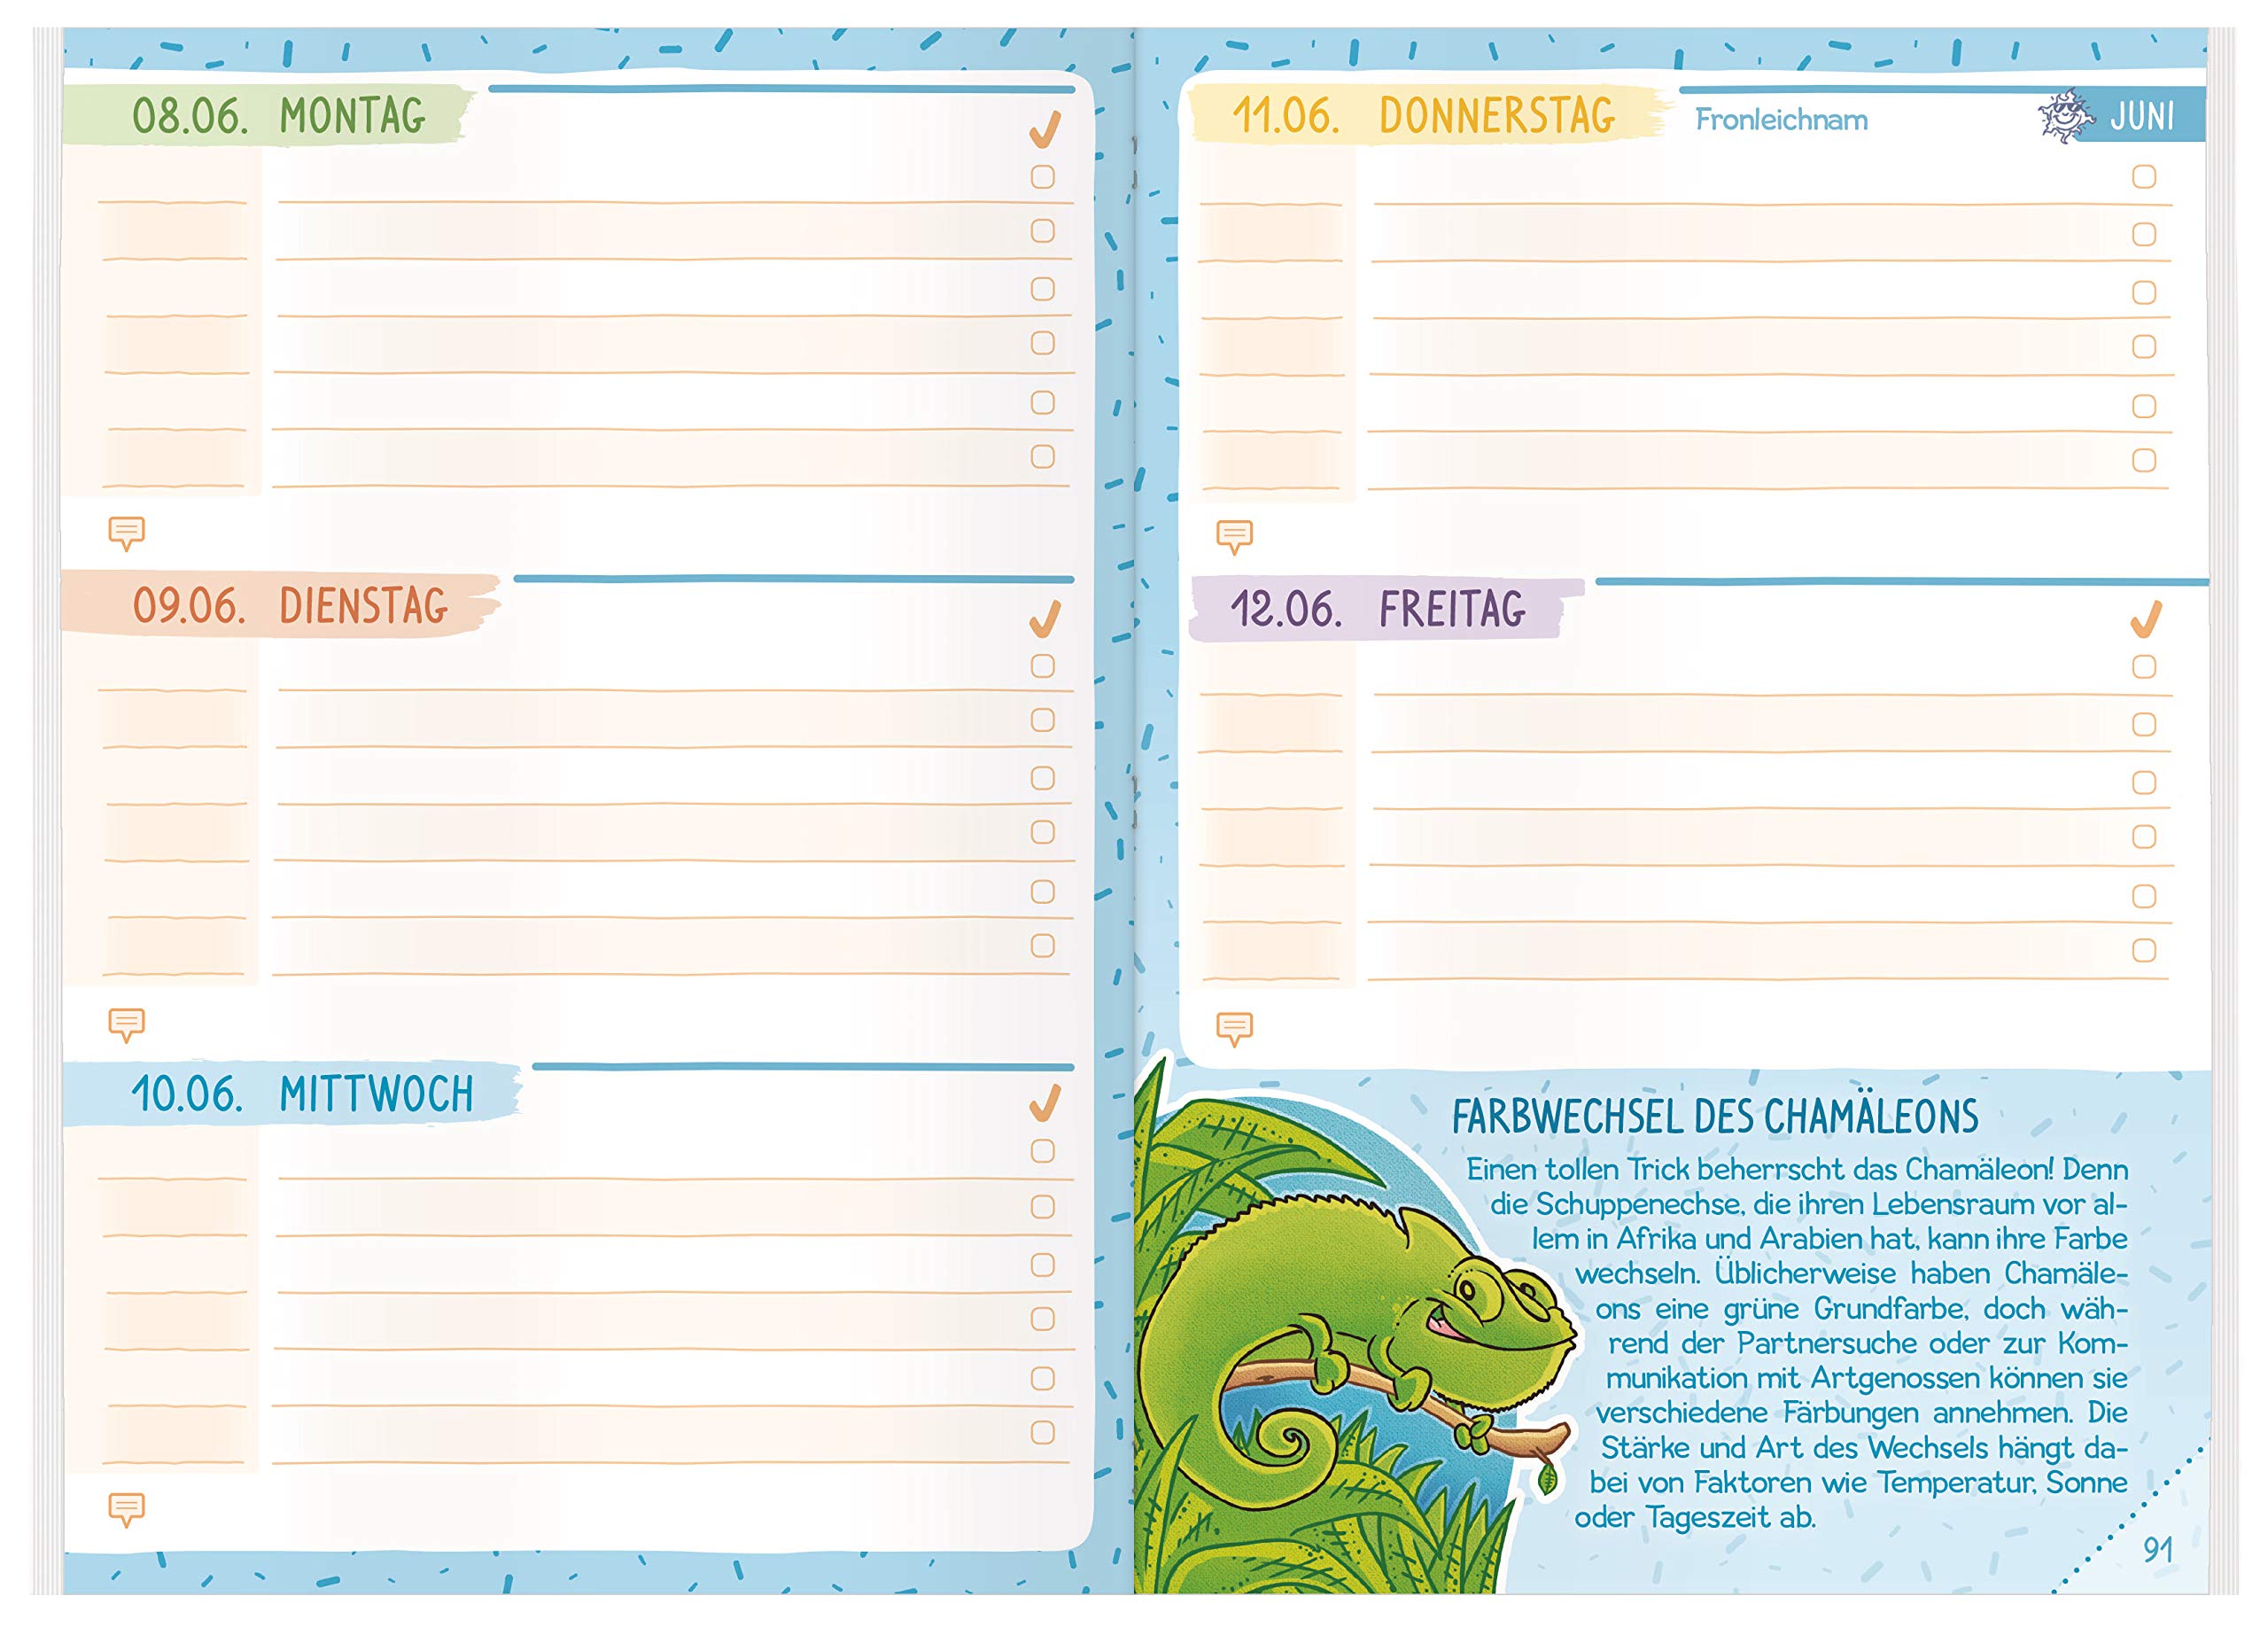 08.06. MONTAG
09.06. DIENSTAG
10.06. MITTWOCH
11.06. DONNERSTAG Fronleichnam
JUNI
12.06. FREITAG
FARBWECHSEL DES CHAMÄLEONS
Einen tollen Trick beherrscht das Chamäleon! Denn
die Schuppenechse, die ihren Lebensraum vor al-
lem in Afrika und Arabien hat, kann ihre Farbe
wechseln. Üblicherweise haben Chamäle-
ons eine grüne Grundfarbe, doch wäh-
rend der Partnersuche oder zur Kom-
munikation mit Artgenossen können sie
verschiedene Färbungen annehmen. Die
Stärke und Art des Wechsels hängt da-
bei von Faktoren wie Temperatur, Sonne
oder Tageszeit ab.
91